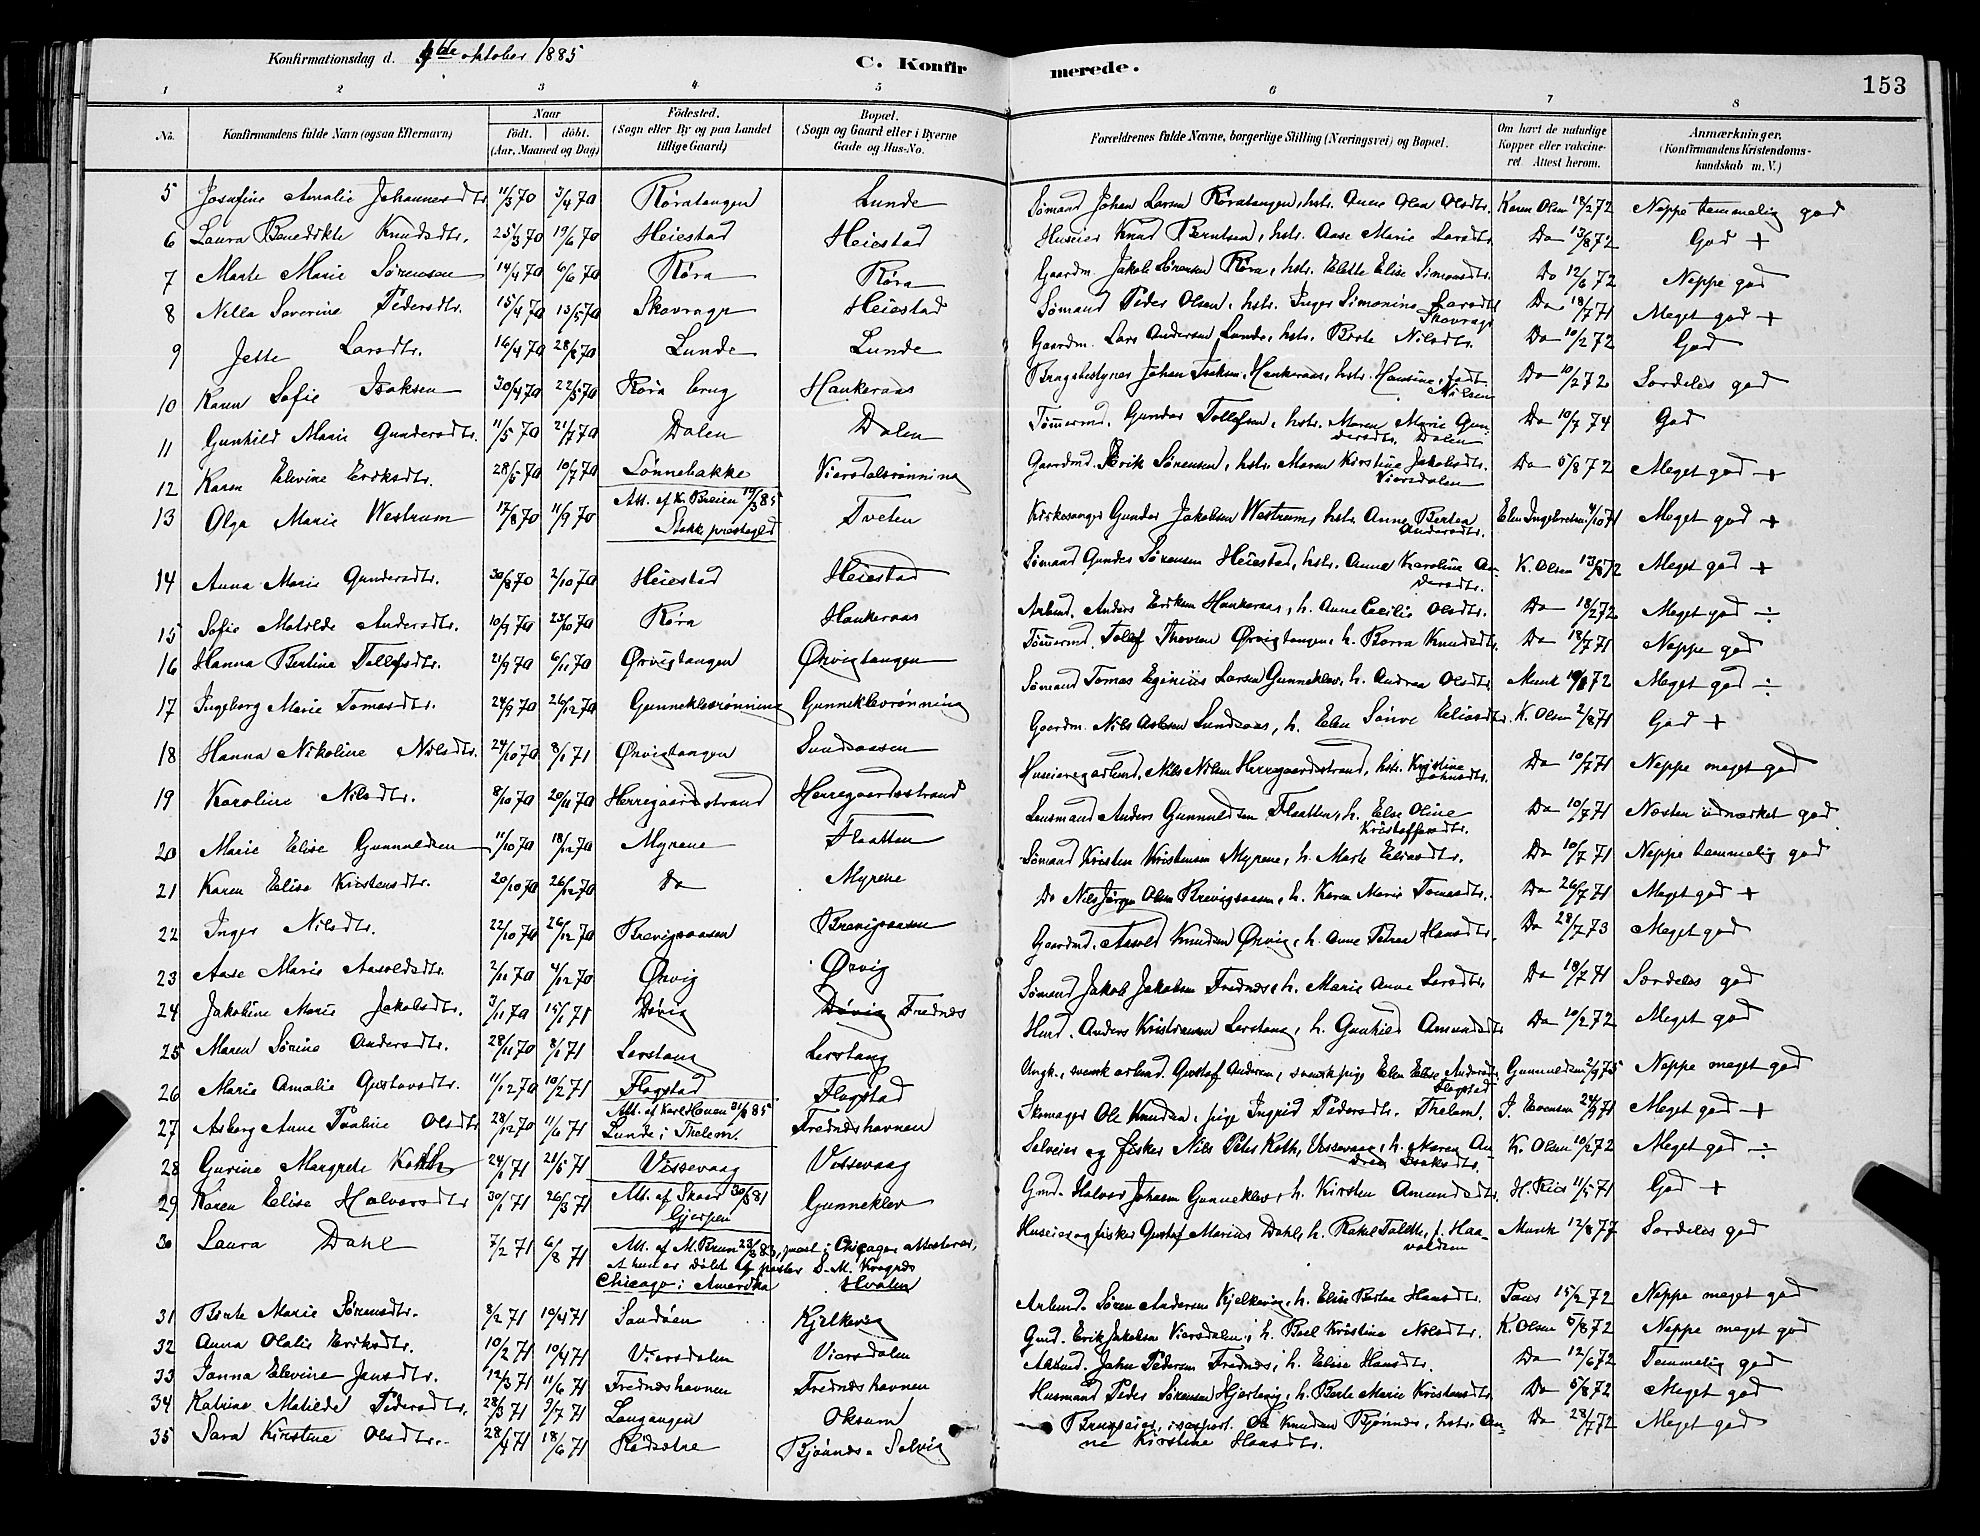 Konfirmationsdag d. 4de oktober 1885
C. Konfirmerede.
153
1 2 3 4 5 6 7 8
No. Konfirmandens fulde Navn (ogsaa Efternavn) Naar Födt. döbt. (Aar, Maaned og Dag) Födested. (Sogn eller By og paa Landet tillige Gaard) Bopæl. (Sogn og Gaard eller i Byerne Gade og Hus-No. Forældrenes fulde Navne, borgerlige Stilling (Næringsvei) og Bopæl. Om havt de naturlige Kopper eller vakcineret. Attest herom. Anmærkninger. (Konfirmandens Kristendomskundskab m. V.)
5 Josefine Amalie Johannesdtr. 11/3 70 3/4 70 Røratangen Lunde Sømand Johan Larsen Røratangen, hstr. Anne Olea Olsdtr. Karen Olsen 18/2 72 Neppe temmelig god
6 Laura Benedikte Knudsdtr. 25/3 70 19/6 70 Heiestad Heiestad Huseier Knud Berntsen, hstr. Aase Marie Larsdtr. Do 13/8 72 God +
7 Marte Marie Sørensen 14/4 70 6/6 70 Røra Røra Gaardm. Jakob Sørensen Røra, hstr. Elette Elise Simonsdtr. Do 12/6 72 Neppe god
8 Nella Severine Pedersdtr. 15/4 70 13/5 70 Skavrage Heiestad Sømand Peder Olsen, hstr. Inger Simonine Larsdtr Skavrage Do 18/7 71 Meget god +
9 Jette Larsdtr. 16/4 70 28/6 70 Lunde Lunde Gaardm. Lars Andersen Lunde, hstr. Berte Nilsdtr. Do 10/2 72 God
10 Karen Sofie Isaksen 30/4 70 22/5 70 Røra brug Hankeraas Brugsbestyrer Johan Isaksen Hankeraas, hstr. Hansine, født Nilsen Do 10/2 72 Særdeles god
11 Gunhild Marie Gundersdtr. 11/5 70 21/7 70 Dalen Dalen Tømmermd. Gunder Tollefsen, hstr. Maren Marie Gundersdtr. Dalen Do 10/7 74 God
12 Karen Elevine Eriksdtr. 28/5 70 10/7 70 Lønnebakke Viersdalsrønning Gaardmd. Erik Sørensen, hstr. Maren Kirstine Jakobsdtr. Viersdalen Do 5/8 72 Meget god +
13 Olga Marie Westrum 17/8 70 11/9 70 Att. af K. Breien 19/3 85 Slekk præstegjeld Tveten Kirkesanger Gunder Jakobsen Westrum, hstr. Anne Bertea Andersdtr. Elen Ingebretsen 4/10 71 Meget god +
14 Anna Marie Gundersdtr. 30/8 70 2/10 70 Heiestad Heiestad Sømand Gunder Sørensen Heiestad, hstr. Anna Karoline Andersdtr. K. Olsen 13/8 72 Meget god +
15 Sofie Matilde Andersdtr. 10/9 70 23/10 70 Røra Hankeraas Arbmd. Anders Eriksen Hankeraas, h. Anne Cecilie Olsdtr. Do 18/2 72 Meget god ÷
16 Hanna Bertine Tollefsdtr. 21/9 70 6/11 70 Ørvigtangen Ørvigtangen Tømmermd. Tollef Thovsen Ørvigtangen, h. Borra Knudsdtr. Do 18/7 71 Neppe god
17 Ingeborg Marie Tomasdtr. 24/9 70 26/12 70 Gunneklevrønning Gunneklevrønning Sømand Tomas Eginius Larsen Gunneklev, h. Andrea Olsdtr. Munk 10/6 72 Meget god ÷
18 Hanna Nikoline Nilsdtr. 24/10 70 8/1 71 Ørvigtangen Sundsaasen Gaardm. Nils Aslesen Sundsaas, h. Elen Sønve Eliasdtr. K. Olsen 2/8 71 God +
19 Karoline Nilsdtr. 8/10 70 20/11 70 Herregaardsstrand Herregaardsstrand Huseier og arbmd. Nils Nilsen Herregaardsstrand, hstr. Kristine Johnsdtr. Do 10/7 71 Neppe meget god
20 Marie Elise Gunnuldsen 11/10 70 18/12 70 Myrene Flaatten Lensmand Anders Gunnuldsen Flaatten, h. Else Oline Kristoffersdtr. Do 10/7 71 Næsten udmærket god
21 Karen Elise Kristensdtr. 20/10 70 26/12 70 Do Myrene Sømand Kristen Kristensen Myrene, h. Marte Eliasdtr. Do 10/7 71 Neppe temmelig god
22 Inger Nilsdtr. 22/10 70 26/12 70 Brevigsaasen Brevigsaasen Do Nils Jørgen Olsen Brevigsaasen, h. Karen Marie Tomasdtr. Do 26/7 71 Meget god +
23 Aase Marie Aasoldsdtr. 2/11 70 4/12 70 Ørvig Ørvig Gaardmd. Aasold Knudsen Ørvig, h. Anne Petrea Hansdtr. Do 28/7 73 Meget god
24 Jakobine Marie Jakobsdtr. 3/11 70 15/1 71 Døvig Døvig Frednes Sømand Jakob Jakobsen Frednes, h. Marie Anne Larsdtr. Do 18/7 71 Særdeles god
25 Maren Sørine Andersdtr. 28/11 70 8/1 71 Lerstang Lerstang Husd. Anders Kristiansen Lerstang, h. Gunhild Amundsdtr Do 10/2 72 Meget god
26 Marie Amalie Gustavsdtr. 11/12 70 10/2 71 Flogstad Flogstad Ungk., svensk arbmd. Gustaf Andersen, svensk pige Elen Elise Andersdtr Flogstad Gunnuldsen 2/9 75 Neppe meget god
27 Asberg Anne Pauline Olsdtr 28/12 70 11/6 71 Att. af Karl Honen 31/3 85 Lunde i Thelem. Frednæshavnen Skomager Ole Knudsen, pige Ingrid Pedersdtr. Thelemt. J. Evensen 24/9 71 Meget god +
28 Gurine Margrete Koth 24/1 71 21/5 71 Vissevaag Vissevaag Selveier og fisker Nils Peter Koth, Vissevaag, h. Maren Andrea Isaksdtr. K. Olsen 10/2 72 Meget god ÷
29 Karen Elise Halvorsdtr 30/1 71 26/3 71 Att. af Skaar 30/3 81 Gjerpen Gunneklev Gmd. Halvor Johnsen Gunneklev, h. Kirsten Amundsdtr. H. Riis 11/5 71 God +
30 Laura Dahl 7/2 71 6/8 71 Att. af M. Brun 23/3 83, præst i Chicago, attesterer, at hun er døbt af pastor S. M. Krognes Chicago i Amerika Hvalen Huseier og fisker Gustaf Marius Dahl, h. Rakel Tallette, f. Haavaldsen Munk 12/8 77 Særdeles god
31 Berte Marie Sørensdtr. 8/2 71 10/4 71 Sandøen Kjelkevig Arbmd. Søren Andersen Kjelkevig, h. Elise Bertea Hansdtr. Paus 15/2 72 Neppe meget god
32 Anna Olalie Eriksdtr. 10/2 71 10/4 71 Viersdalen Viersdalen Gmd. Erik Jakobsen Viersdalen, h. Boel Kristine Nilsdtr. K. Olsen 5/8 72 Neppe meget god
33 Janna Elevine Jansdtr. 12/3 71 11/6 71 Frednæshavnen Frednæshavnen Arbmd. Jahn Pedersen Frednæs, h. Elise Hansdtr. Do 12/6 72 Temmelig god
34 Katrine Matilde Pedersdtr. 28/3 71 9/7 71 Langangen Oksum Husmand Peder Sørensen Hjertevig, h. Berte Marie Kristensdtr. Do 5/8 72 Meget god
35 Sara Kirstine Olsdtr. 28/4 71 18/6 71 Rødsætre Bjønnes Solvig Brugseier Ole Knudsen Bjønnes, hstr. Anne Kirstine Hansdtr. Do 28/7 72 Meget god